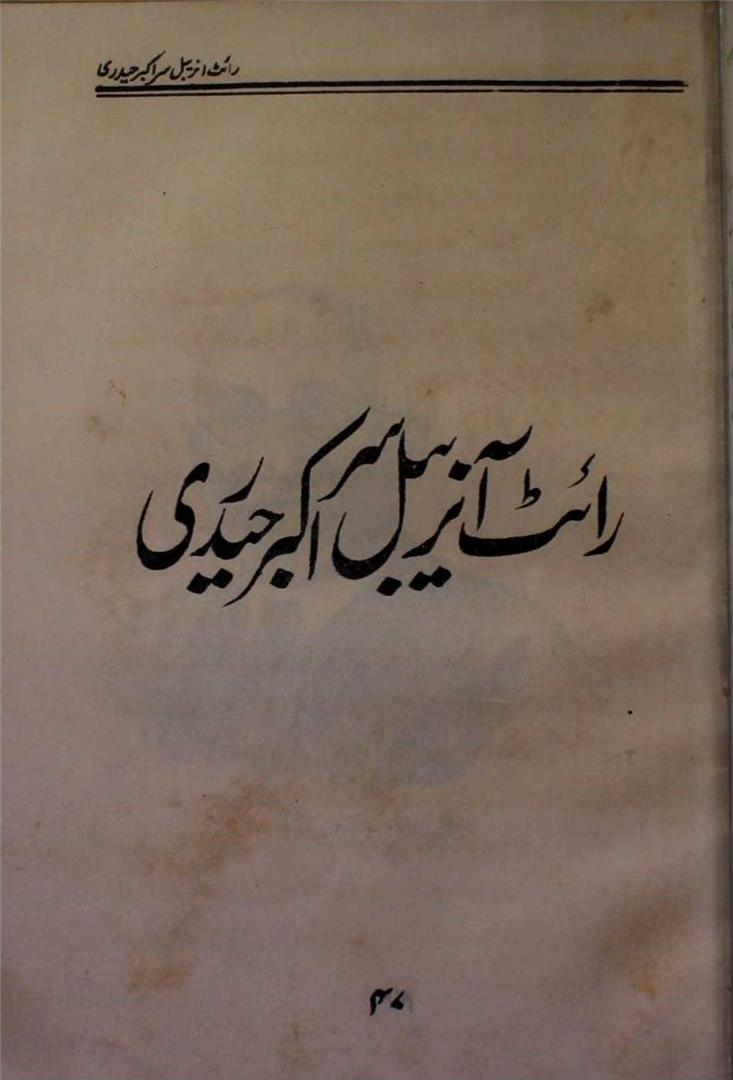 رائٹ انریبل سر اکبر حیدری
رائٹ آنریبل سر اکبر حیدری
۴۷